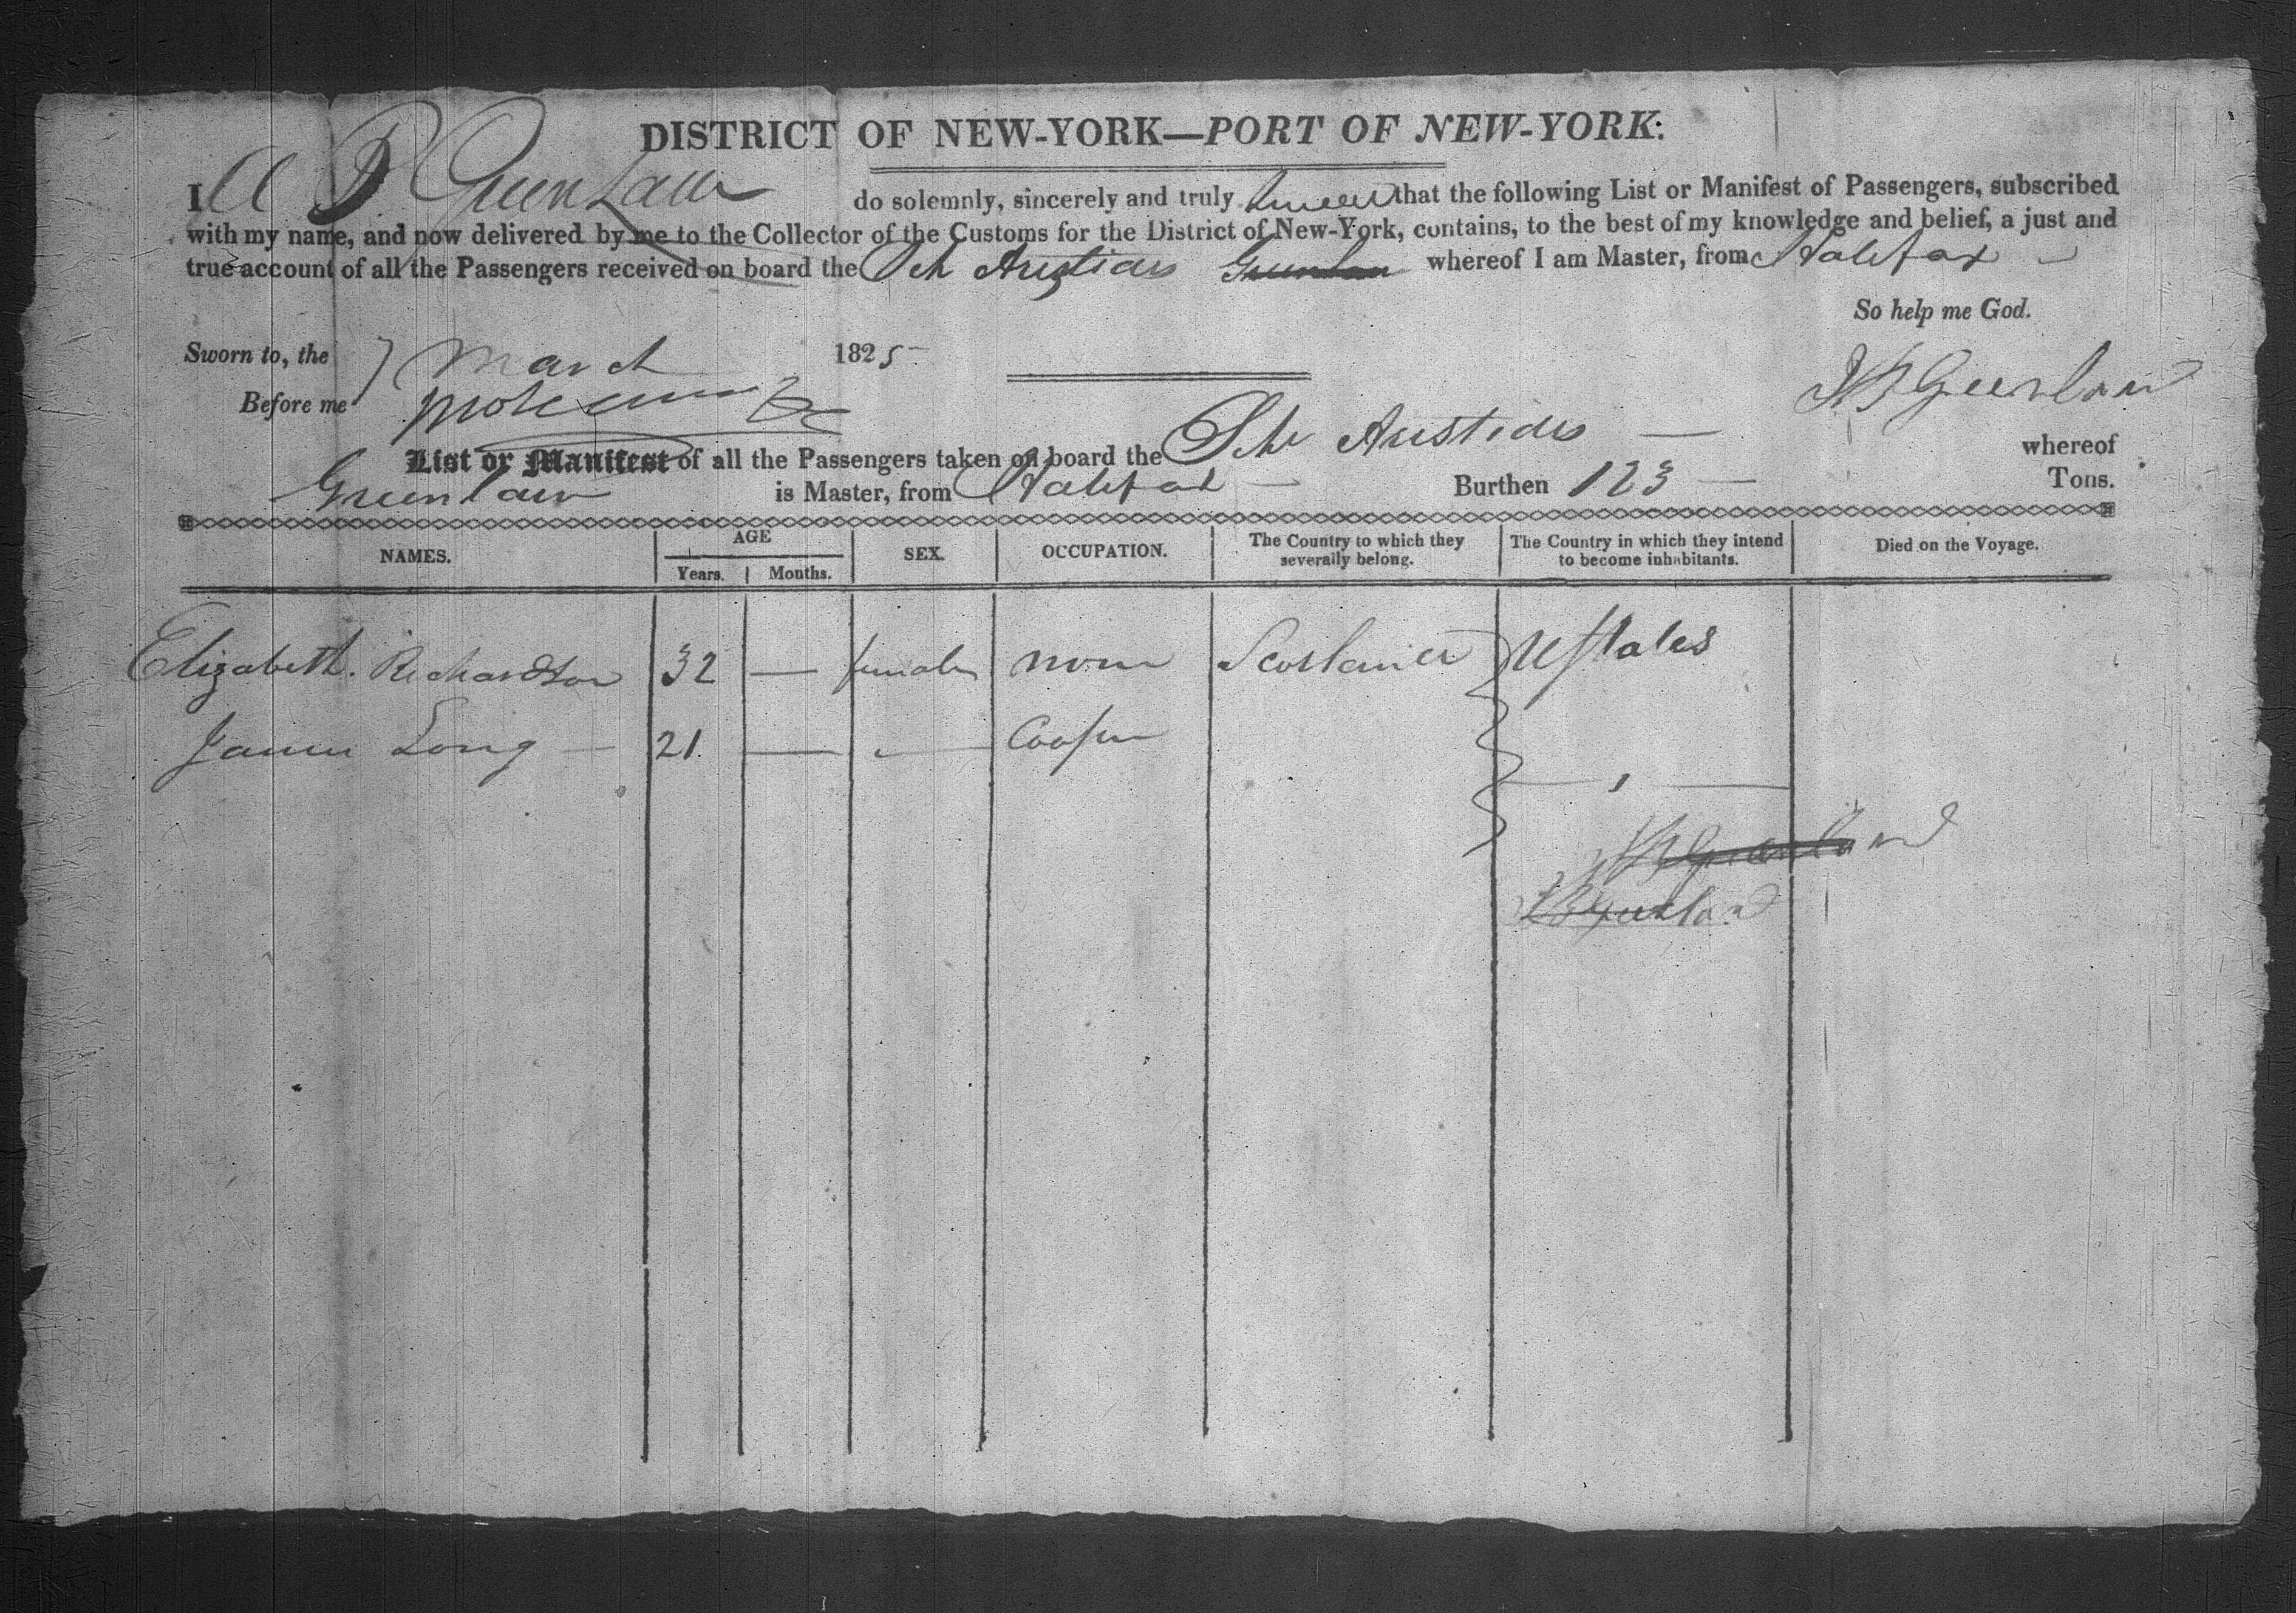 DISTRICT OF NEW-YORK—PORT OF NEW-YORK:
I B GreenLaw do solemnly, sincerely and truly swear that the following List or Manifest of Passengers, subscribed
with my name, and now delivered by me to the Collector of the Customs for the District of New-York, contains, to the best of my knowledge and belief, a just and
true account of all the Passengers received on board the Sch Aristides Greenlaw whereof I am Master, from Halifax
So help me God.
Sworn to, the March 1825
Before me
J B Greenlaw
List or Manifest of all the Passengers taken on board the Sch Aristides — whereof
Greenlaw is Master, from Halifax — Burthen 123 — Tons.
NAMES. AGE Years. Months. SEX. OCCUPATION. The Country to which they severally belong. The Country in which they intend to become inhabitants. Died on the Voyage.
Elizabeth. Richardson 32 — female none UStates
James Long — 21. — Cooper
J B Greenlaw
J B Greenlaw